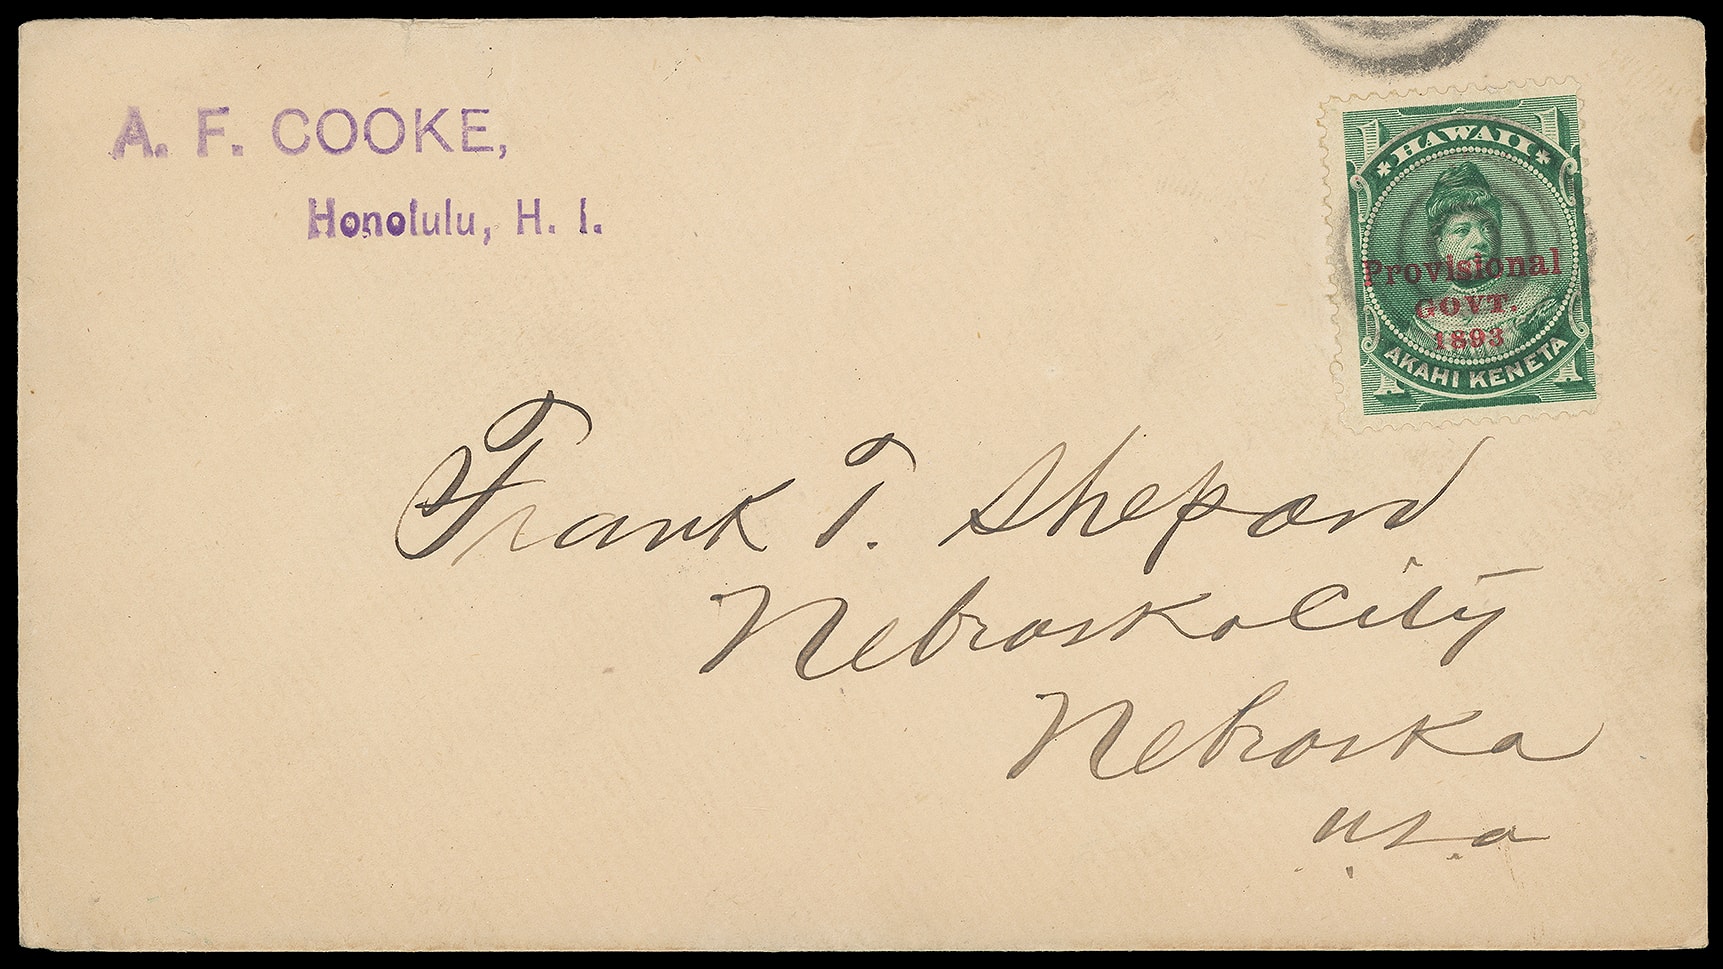 A. F. COOKE,
Honolulu, H. I.
HAWAII
Provisional
GOVT.
1893
AKAHI KENETA
1 1
Frank T. Shepard
Nebraska City
Nebraska
U.S.A